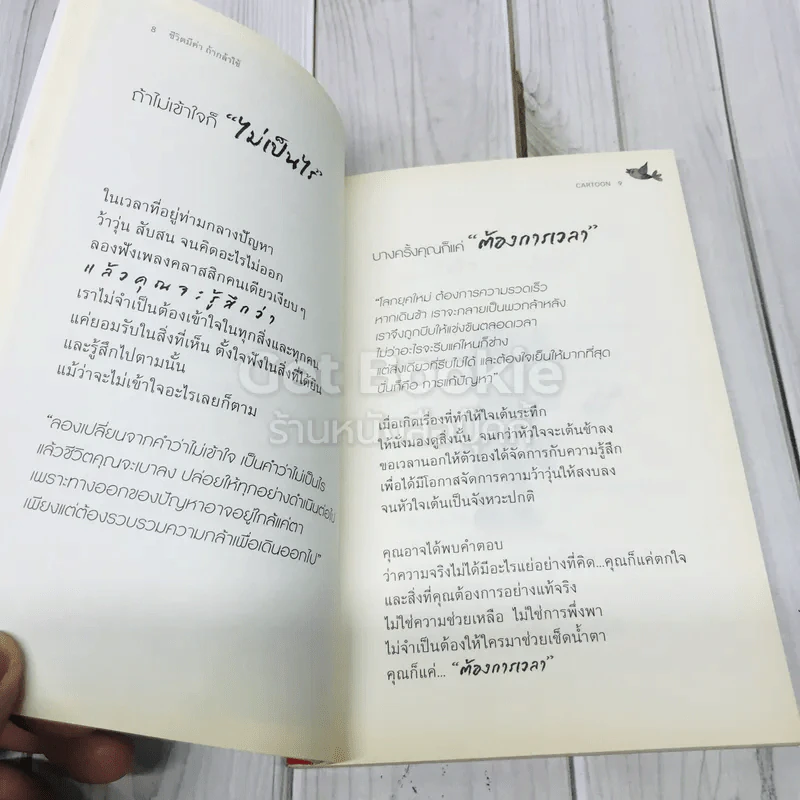 8 ชีวิตมีค่า ถ้ากล้าใช้
ถ้าไม่เข้าใจก็ “ไม่เป็นไร”
ในเวลาที่อยู่ท่ามกลางปัญหา
ว้าวุ่น สับสน จนคิดอะไรไม่ออก
ลองฟังเพลงคลาสสิกคนเดียวเงียบๆ
แล้วคุณจะรู้สึกว่า
เราไม่จำเป็นต้องเข้าใจในทุกสิ่งและทุกคน
แค่ยอมรับในสิ่งที่เห็น ตั้งใจฟังในสิ่งที่ได้ยิน
และรู้สึกไปตามนั้น
แม้ว่าจะไม่เข้าใจอะไรเลยก็ตาม
“ลองเปลี่ยนจากคำว่าไม่เข้าใจ เป็นคำว่าไม่เป็นไร
แล้วชีวิตคุณจะเบาลง ปล่อยให้ทุกอย่างดำเนินต่อไป
เพราะทางออกของปัญหาอาจอยู่ใกล้แค่ตา
เพียงแต่ต้องรวบรวมความกล้าเพื่อเดินออกไป”
CARTOON 9
บางครั้งคุณก็แค่ “ต้องการเวลา”
“โลกยุคใหม่ ต้องการความรวดเร็ว
หากเดินช้า เราจะกลายเป็นพวกล้าหลัง
เราจึงถูกบีบให้แข่งขันตลอดเวลา
ไม่ว่าอะไรจะรีบแค่ไหนก็ช่าง
แต่สิ่งเดียวที่รีบไม่ได้ และต้องใจเย็นให้มากที่สุด
นั่นก็คือ การแก้ปัญหา”
เมื่อเกิดเรื่องที่ทำให้ใจเต้นระทึก
ให้นั่งมองดูสิ่งนั้น จนกว่าหัวใจจะเต้นช้าลง
ขอเวลานอกให้ตัวเองได้จัดการกับความรู้สึก
เพื่อได้มีโอกาสจัดการความว้าวุ่นให้สงบลง
จนหัวใจเต้นเป็นจังหวะปกติ
คุณอาจได้พบคำตอบ
ว่าความจริงไม่ได้มีอะไรแย่อย่างที่คิด...คุณก็แค่ตกใจ
และสิ่งที่คุณต้องการอย่างแท้จริง
ไม่ใช่ความช่วยเหลือ ไม่ใช่การพึ่งพา
ไม่จำเป็นต้องให้ใครมาช่วยเช็ดน้ำตา
คุณก็แค่... “ต้องการเวลา”
Get Bookie